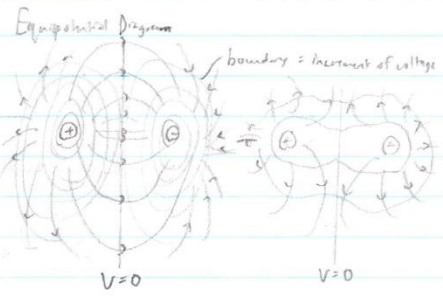 Equipotential Diagram
boundary = increment of voltage
+
-
+
-
V=0
V=0